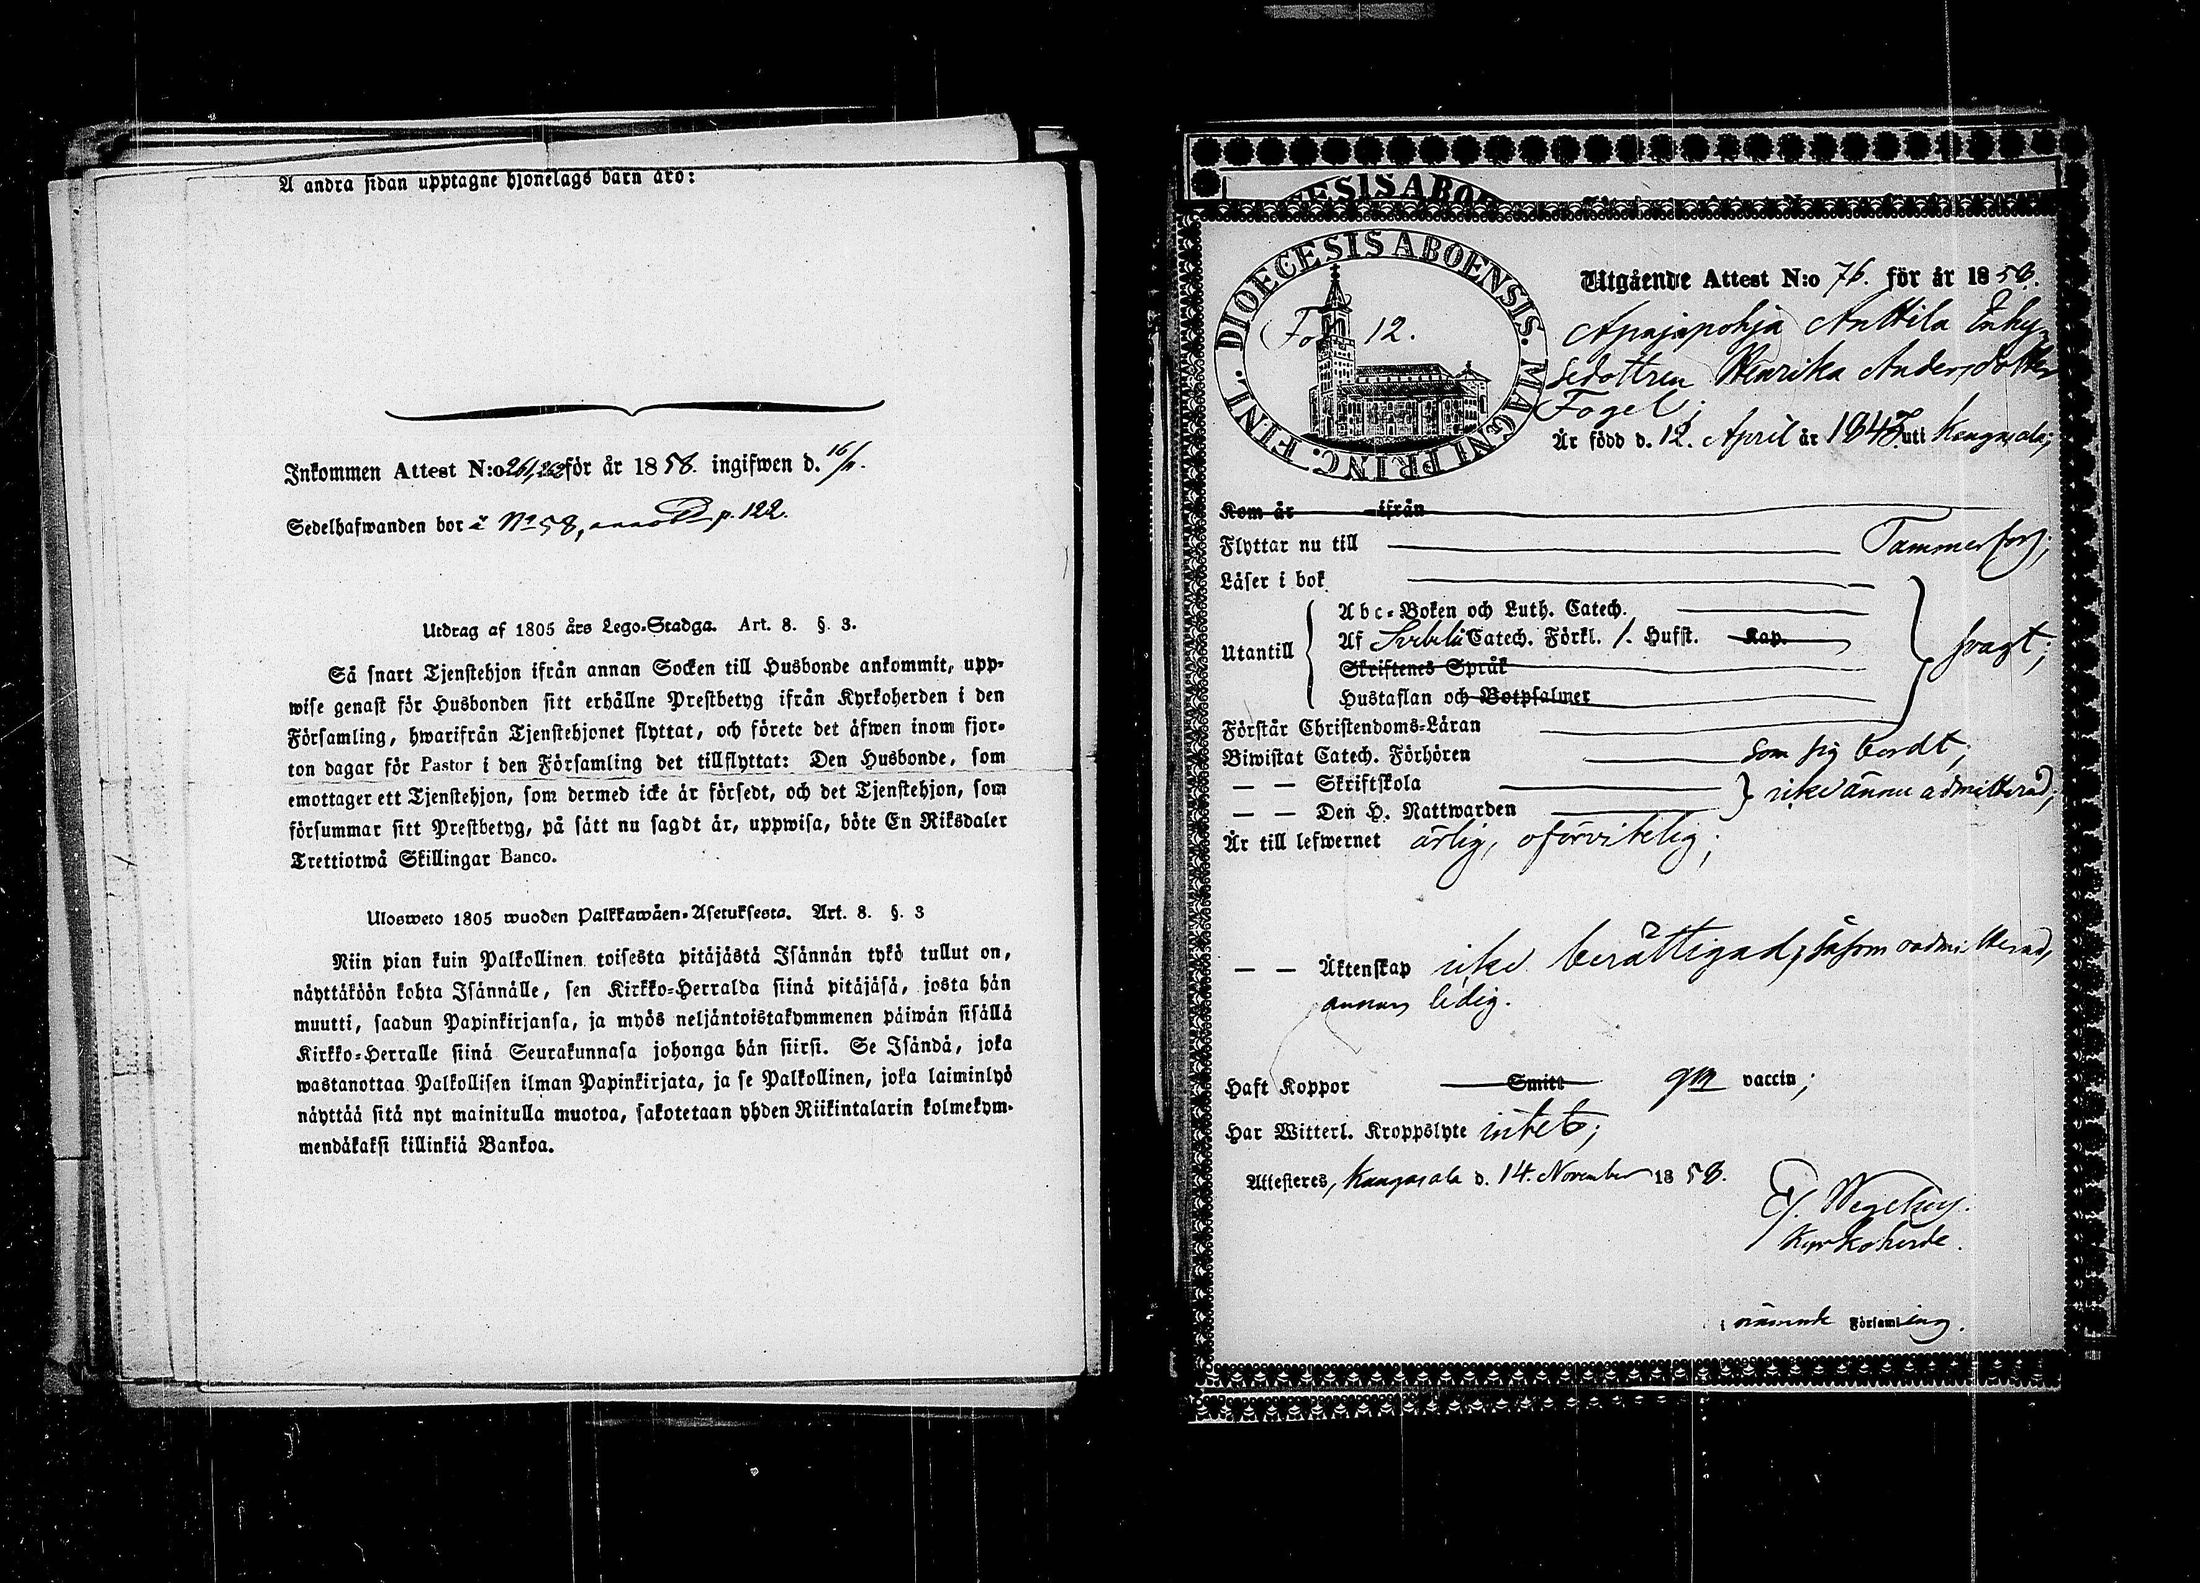 Å andra sidan upptagne hjonelags barn äro:
Inkommen Attest N:o för år 1858. ingifwen d. 16/11.
Sedelhafwanden bor å No 58, p. 122.
Utdrag af 1805 års Lego-Stadga. Art. 8. §. 3.
Så snart Tjenstehjon ifrån annan Socken till Husbonde ankommit, upp-
wise genast för Husbonden sitt erhållne Prestbetyg ifrån Kyrkoherden i den
Församling, hwarifrån Tjenstehjonet flyttat, och förete det äfwen inom fjor-
ton dagar för Pastor i den Församling det tillflyttat: Den Husbonde, som
emottager ett Tjenstehjon, som dermed icke är försedt, och det Tjenstehjon, som
försummar sitt Prestbetyg, på sätt nu sagdt är, uppwisa, böte En Riksdaler
Trettiotwå Skillingar Banco.
Ulosweto 1805 wuoden Palkkawäen-Asetuksesta. Art. 8. §. 3
Niin pian kuin Palkollinen toisesta pitäjästä Isännän tykö tullut on,
näyttäköön kohta Isännälle, sen Kirkko-Herralda siinä pitäjäsä, josta hän
muutti, saadun Papinkirjansa, ja myös neljäntoistakymmenen päiwän sisällä
Kirkko-Herralle siinä Seurakunnasa johonga hän siirsi. Se Isändä, joka
wastanottaa Palkollisen ilman Papinkirjata, ja se Palkollinen, joka laiminlyö
näyttää sitä nyt mainitulla muotoa, sakotetaan yhden Riikintalarin kolmekym-
mendäkaksi killinkiä Bankoa.
DIOECESIS ABOENSIS. MAGNI PRINC. FINL.
Fol 12.
Utgående Attest N:o 76. för år 1858.
Apajapohja Anttila Enky
sedottren Henrika Andersdotter
Fogel;
Är född d. 12. April år 1843 uti Kangasala;
Kom år ifrån
Flyttar nu till Tammerfors;
Läser i bok
Abc-Boken och Luth. Catech.
Utantill Af Catech. Förkl. 1. Hufst. Kap. svagt;
Skriftenes Språk
Hustaflan och Botpsalmer
Förstår Christendoms-Läran
Biwistat Catech. Förhören som sig bordt;
— — Skriftskola icke ännu admitterad;
— — Den H. Nattwarden
Är till lefwernet ärlig, oförvitelig;
— — Äktenskap icke berättigad, såsom oadmitterad,
annars ledig.
Haft Koppor Smitt gm vaccin;
Har Witterl. Kroppslyte intet;
Attesteres, Kangasala d. 14. November 1858.
Wegelius.
Kyrkoherde.
i nämnde Församling.